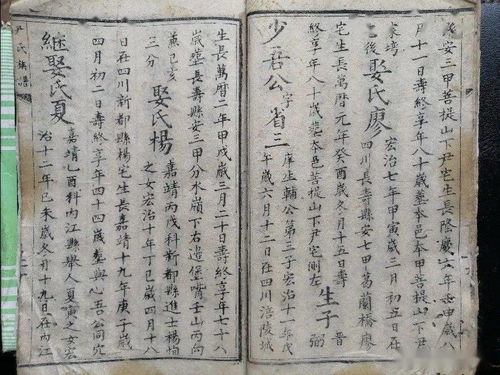 安三甲菩提山下尹宅生長隆慶六年壬申歲八
月十一日壽終享年八十歲墓本邑本甲菩提山下尹
宏治七年甲寅歲三月初五日在
之後 娶氏廖 四川長壽縣安七甲葛蘭橋廖
宅生長萬曆元年癸酉歲冬月十五日壽
終享年八十歲墓本邑菩提山下尹宅側左
生子 晉
弼
少吾公 字省三
庠生輔公第三子宏治十一年戊
午歲六月十二日在四川涪陵城
生長萬曆二年甲戌歲三月二十日壽終享年七十八
歲塟長壽縣安三甲分水嶺下右造堡嘴壬山丙向
兼己亥
三分
娶氏楊
嘉靖丙戌科新都縣進士楊恂
之女宏治十年丁巳歲四月十八
日在四川新都縣楊宅生長嘉靖十九年庚子歲
四月初二日壽終享年四十四歲塟與心吾公同穴
繼娶氏夏
嘉靖乙酉科內江縣舉人夏之女宏
治十二年己未歲冬月十九日在內江
尹氏族譜